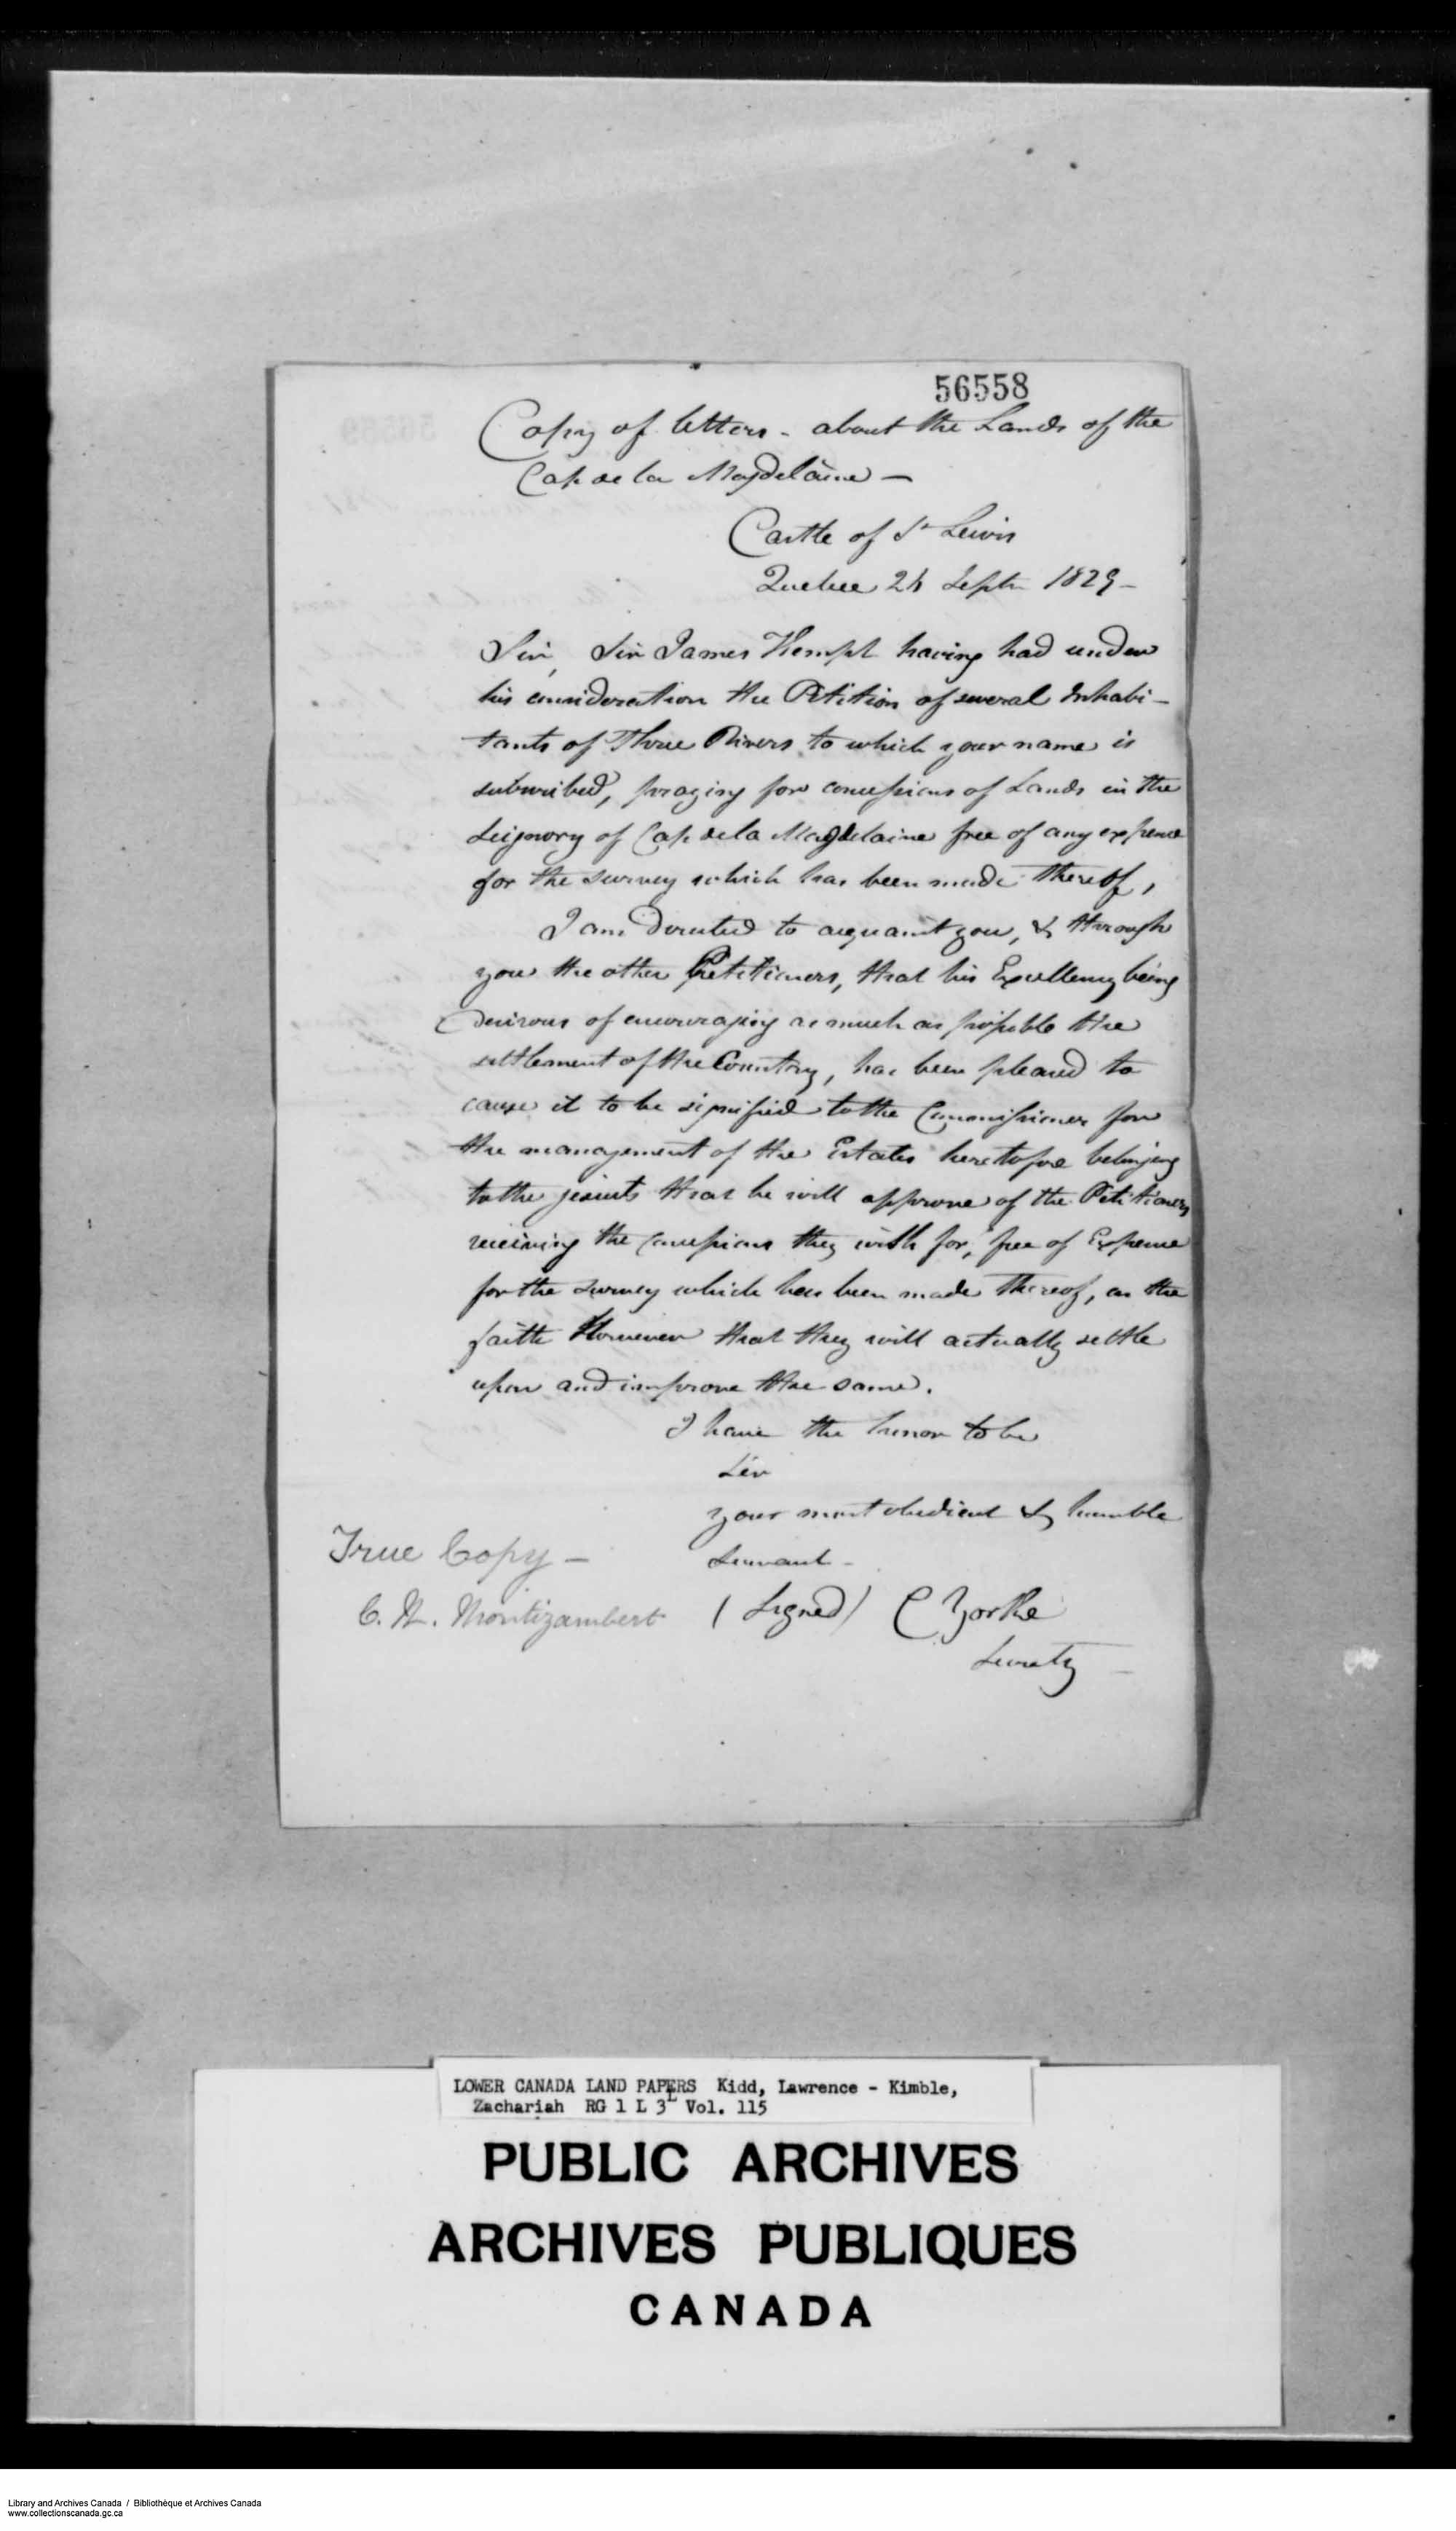 56558
Copy of letters - about the Lands of the
Cap de la Magdelaine —
Castle of St Lewis
Quebec 24 Septr 1829 -
Sir, Sir James Kempt having had under
his consideration the Petition of several Inhabi-
tants of Three Rivers to which your name is
subscribed, praying for concessions of Lands in the
Seignory of Cap de la Magdelaine free of any expense
for the survey which has been made thereof,
I am directed to acquaint you, & through
you the other Petitioners, that his Excellency being
desirous of encouraging as much as possible the
settlement of the Country, has been pleased to
cause it to be signified to the Commissioner for
the management of the Estates heretofore belonging
to the jesuits that he will approve of the Petitioners
receiving the concessions they wish for, free of Expense
for the survey which has been made thereof, on the
faith However that they will actually settle
upon and improve the same.
I have the honor to be
Sir
your most obedient & humble
Servant -
True Copy -
(Signed) C Yorke
C. N. Montizambert
Secrety -
LOWER CANADA LAND PAPERS Kidd, Lawrence - Kimble,
Zachariah RG 1 L 3L Vol. 115
PUBLIC ARCHIVES
ARCHIVES PUBLIQUES
CANADA
Library and Archives Canada / Bibliothèque et Archives Canada
www.collectionscanada.gc.ca